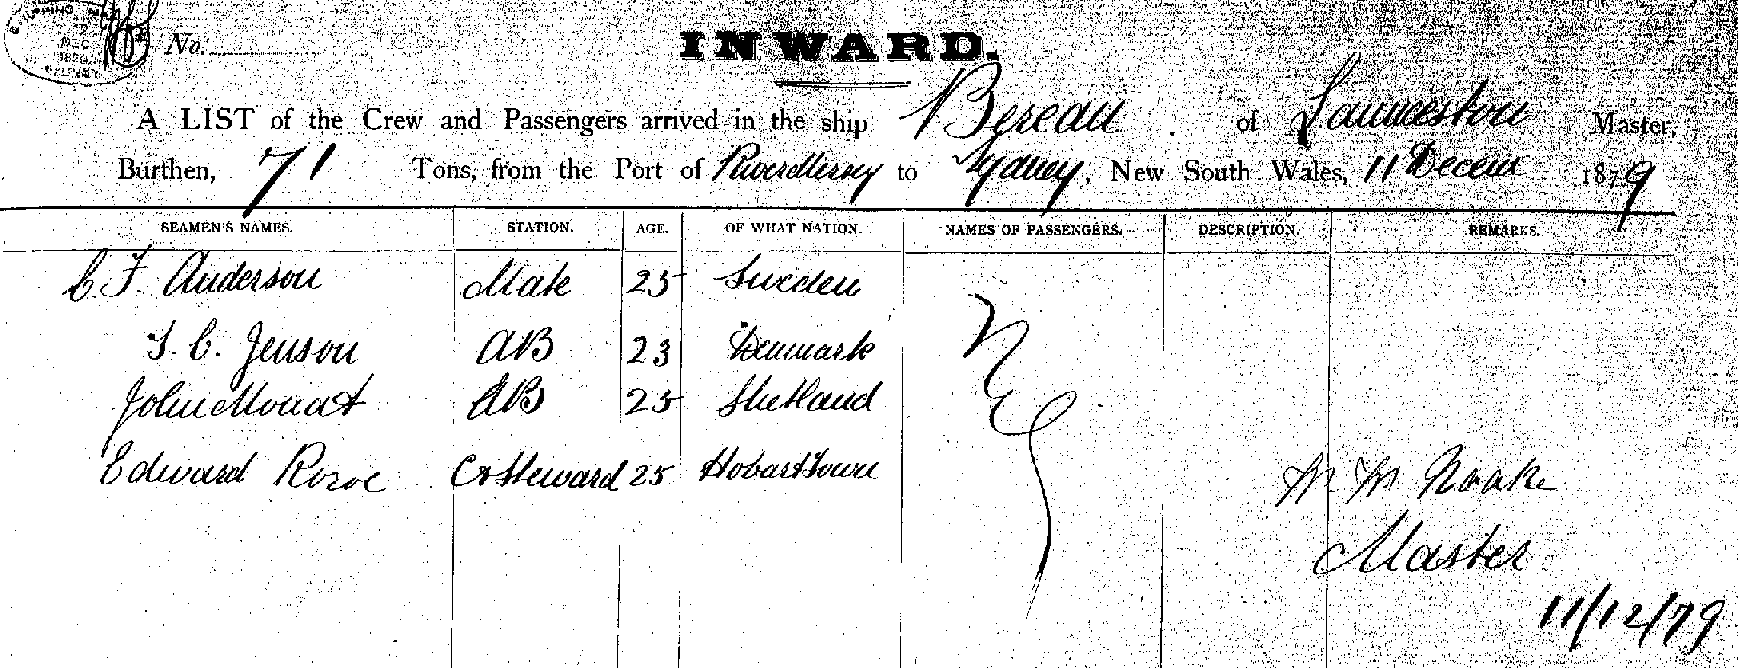 No.
INWARD.
A LIST of the Crew and Passengers arrived in the ship Berean of Launceston Master,
Burthen, 71 Tons, from the Port of River Mersey to Sydney, New South Wales, 11 Decem 1879
SEAMEN'S NAMES. STATION. AGE. OF WHAT NATION. NAMES OF PASSENGERS. DESCRIPTION. REMARKS.
C F Anderson Mate 25 Sweden
J. C. Jenson AB 23 Denmark
John Mouat AB 25 Shetland
Edward C & Steward 25 Hobart Town
Nil
Master
11/12/79